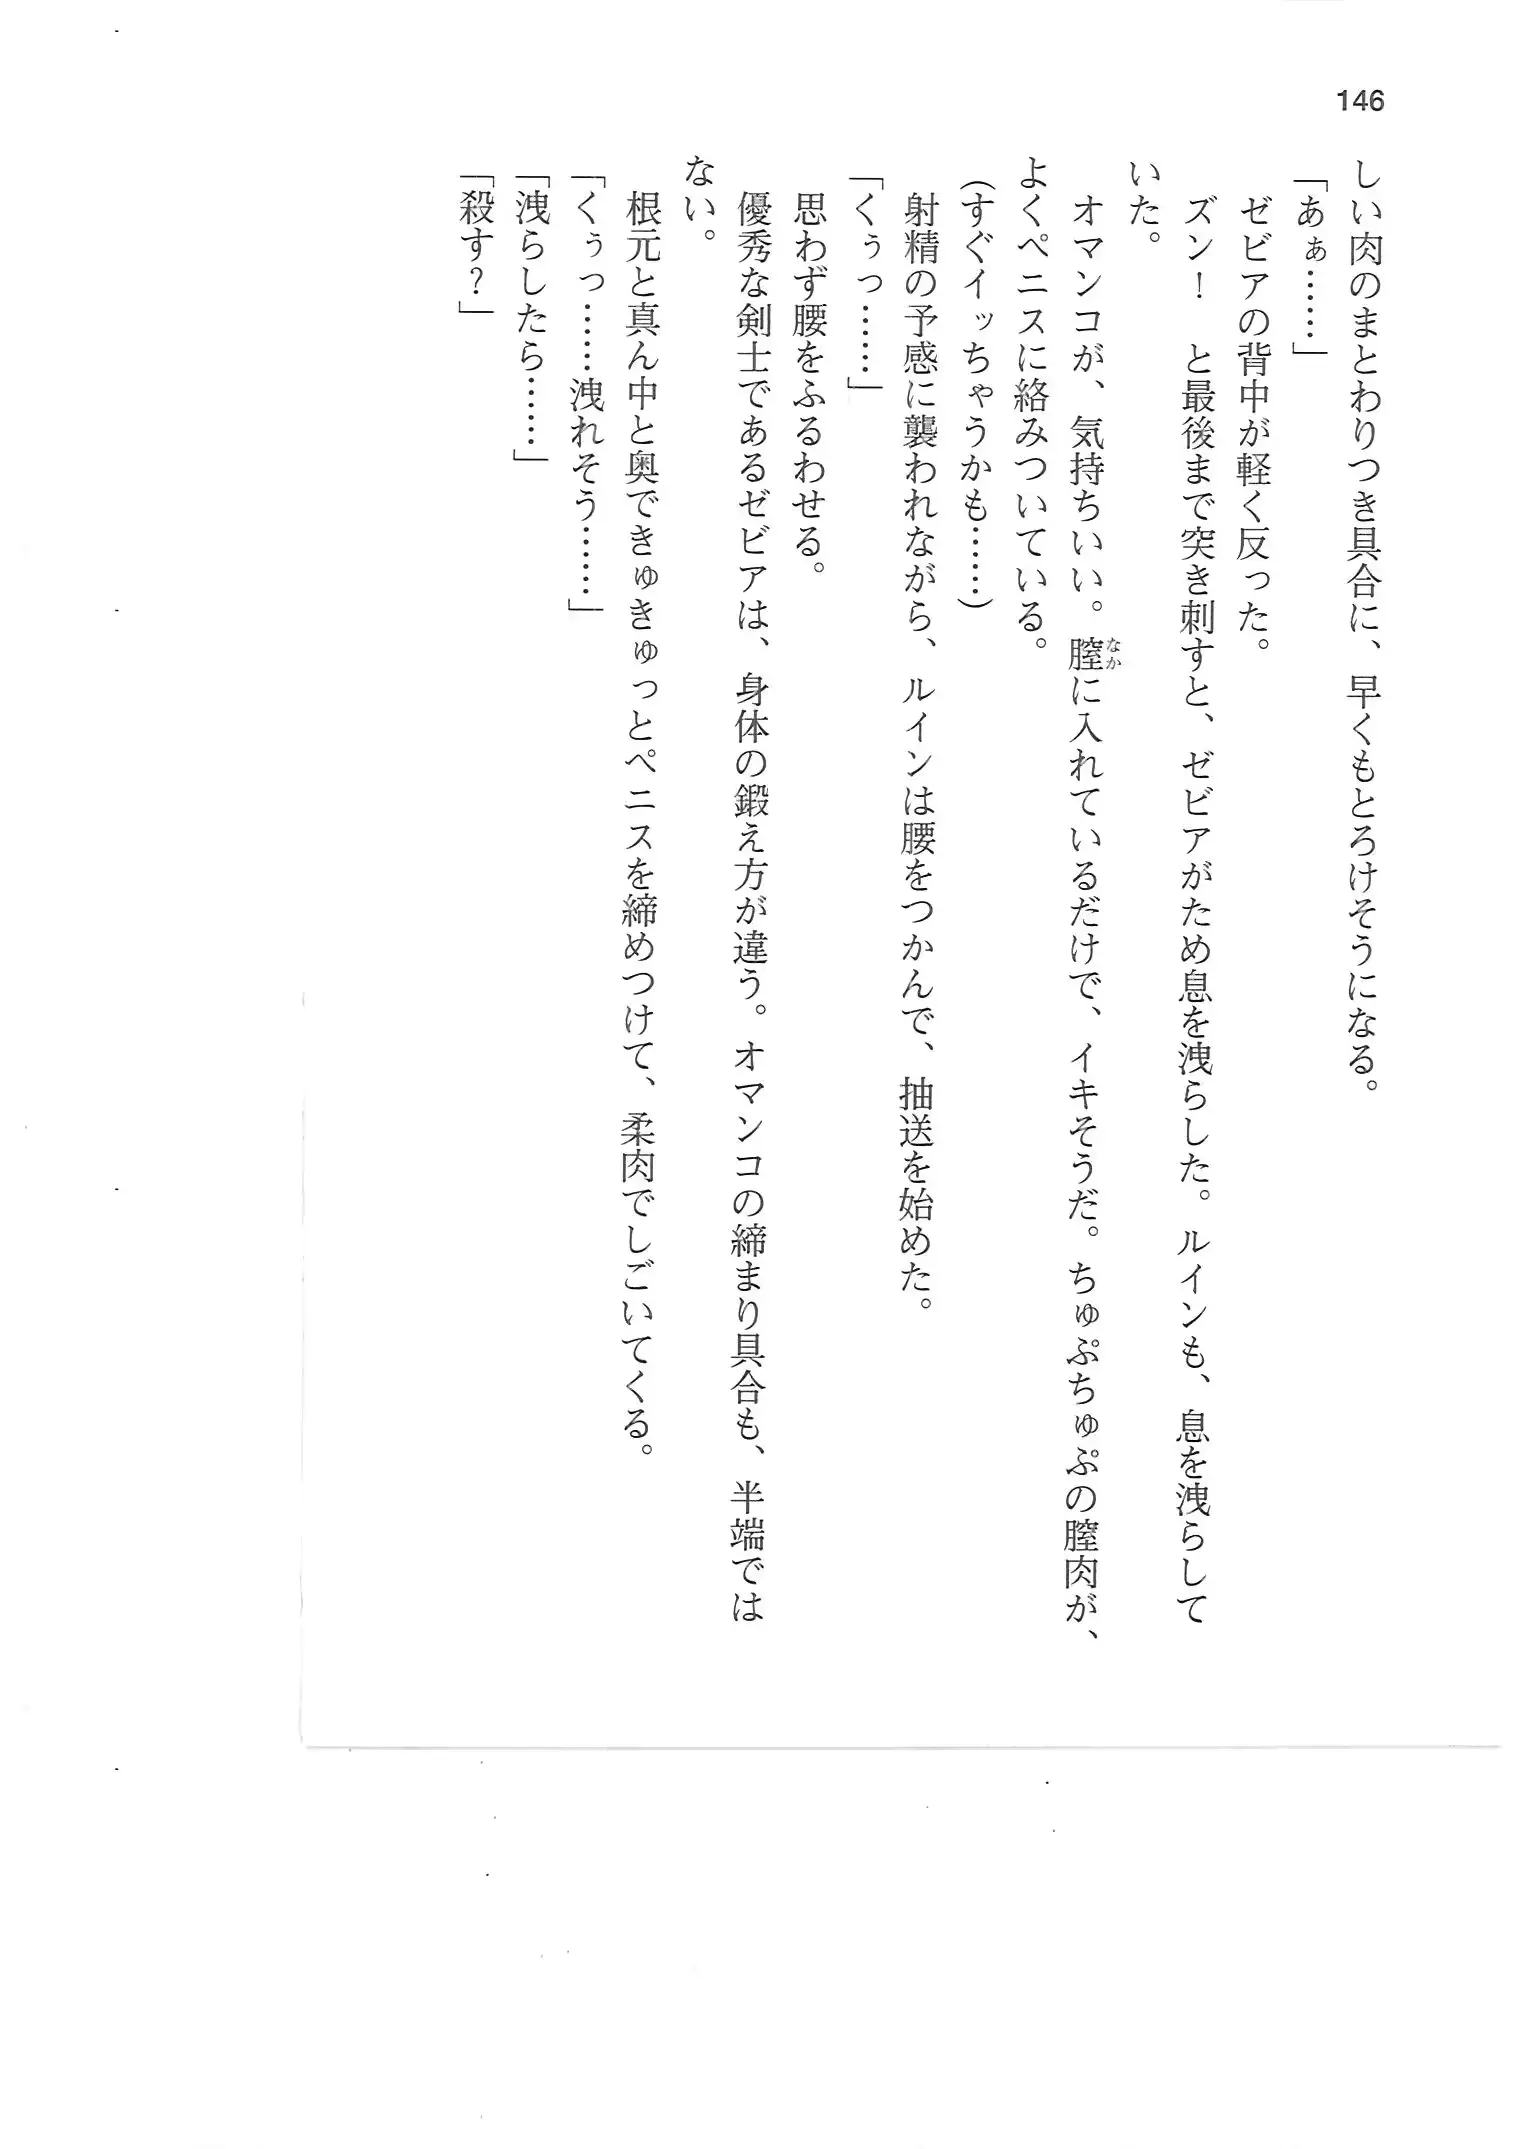 146
しい肉のまとわりつき具合に、早くもとろけそうになる。
「あぁ……」
ゼビアの背中が軽く反った。
ズン！　と最後まで突き刺すと、ゼビアがため息を洩らした。ルインも、息を洩らして
いた。
オマンコが、気持ちいい。膣なかに入れているだけで、イキそうだ。ちゅぷちゅぷの膣肉が、
よくペニスに絡みついている。
（すぐイッちゃうかも……）
射精の予感に襲われながら、ルインは腰をつかんで、抽送を始めた。
「くぅっ……」
思わず腰をふるわせる。
優秀な剣士であるゼビアは、身体の鍛え方が違う。オマンコの締まり具合も、半端では
ない。
根元と真ん中と奥できゅきゅっとペニスを締めつけて、柔肉でしごいてくる。
「くぅっ……洩れそう……」
「洩らしたら……」
「殺す？」